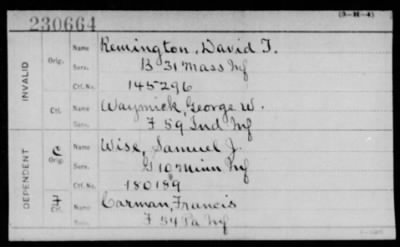 (3-H-4)
230664
INVALID
Orig.
Name Remington, David T.
Serv. B 31 Mass Inf
Ctf. No. 145296
Ctf.
Name Waymick, George W.
Serv. F 59 Ind Inf
DEPENDENT
C
Orig.
Name Wise, Samuel J.
Serv. G 10 Minn Inf
Ctf. No. 180189
F
Ctf.
Name Carman, Francis
F 54 Pa Inf